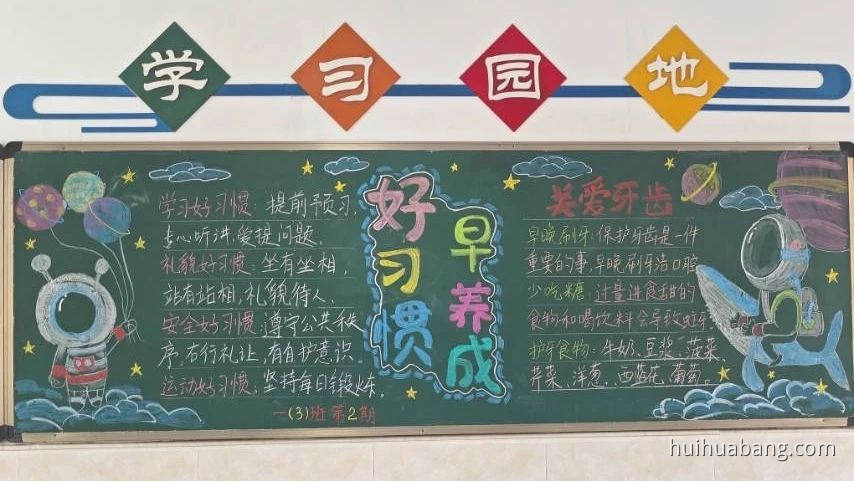 学习园地
学习好习惯：提前预习，
专心听讲，爱提问题。
礼貌好习惯：坐有坐相，
站有站相，礼貌待人。
安全好习惯：遵守公共秩
序，右行礼让，有自护意识。
运动好习惯：坚持每日锻炼。
一(3)班第2期
好习惯
早养成
关爱牙齿
早晚刷牙：保护牙齿是一件
重要的事，早晚刷牙洁口腔
少吃糖：过量进食甜的
食物和喝饮料会导致蛀牙
护牙食物：牛奶、豆浆、菠菜、
芹菜、洋葱、西蓝花、葡萄。
huihuabang.com